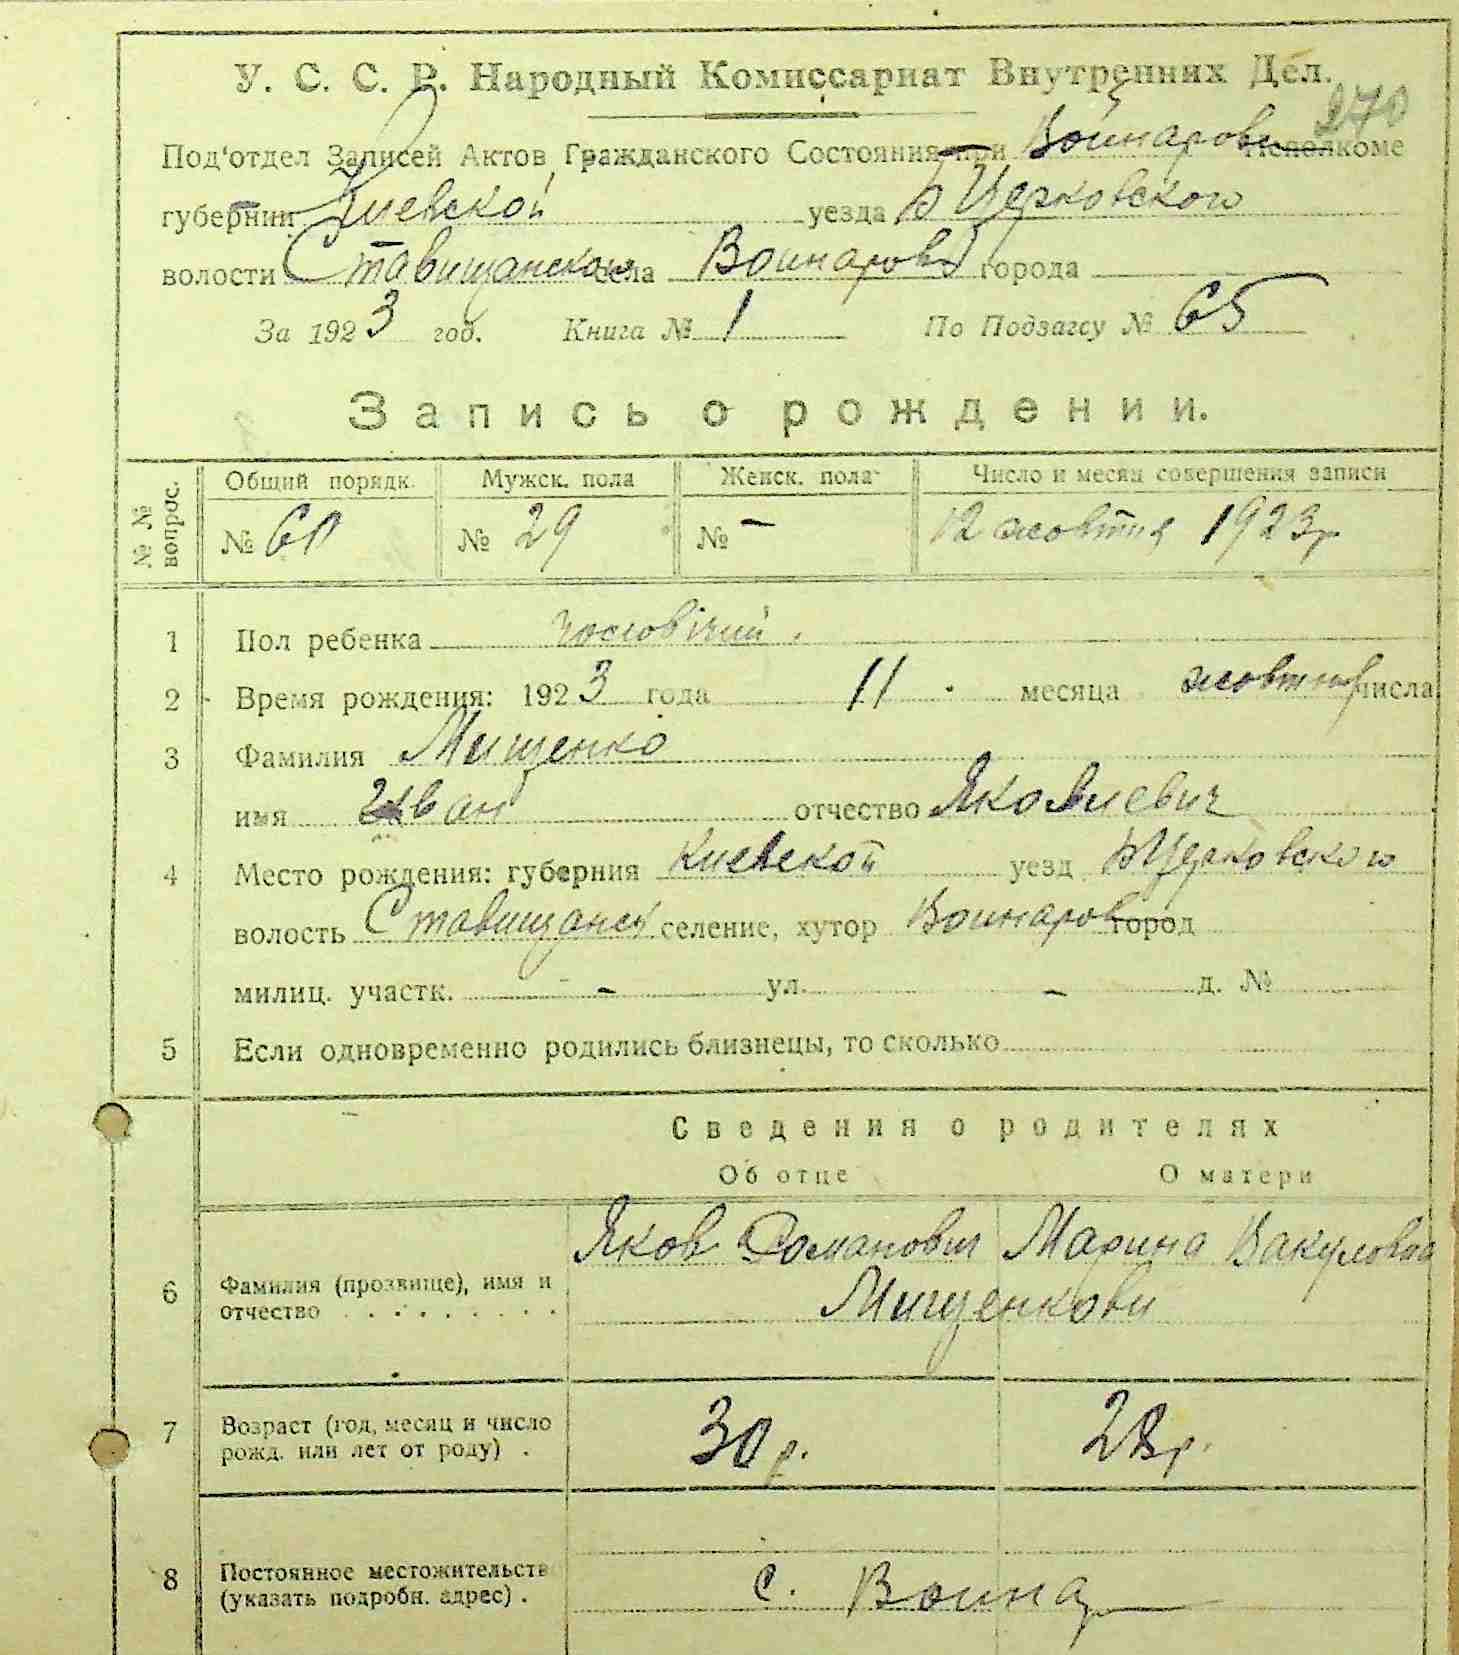 У. С. С. Р. Народный Комиссариат Внутренних Дел.
270
Под'отдел Записей Актов Гражданского Состояния при Войнаровс Исполкоме
губернии Киевской уезда Б Церковского
волости Ставищанской села Воинаровк города
За 1923 год. Книга № 1 По Подзагсу № 65
Запись о рождении.
№ № вопрос. Общий порядк. Мужск. пола Женск. пола Число и месяц совершения записи
№ 60 № 29 № - 12 жовтня 1923 р
1 Пол ребенка чоловічий.
2 Время рождения: 1923 года 11 месяца жовтня числа
3 Фамилия Мищенко
имя Иван отчество Яковлевич
4 Место рождения: губерния Киевской уезд БЦерковского
волость Ставищанск селение, хутор Воинаров город
милиц. участк. - ул. - д. №
5 Если одновременно родились близнецы, то сколько
Сведения о родителях
Об отце О матери
Яков Романович Марина Вакуловна
6 Фамилия (прозвище), имя и отчество Мищенкови
7 Возраст (год, месяц и число рожд. или лет от роду) . 30 р. 28 р.
8 Постоянное местожительств (указать подробн. адрес) . с. Воинар